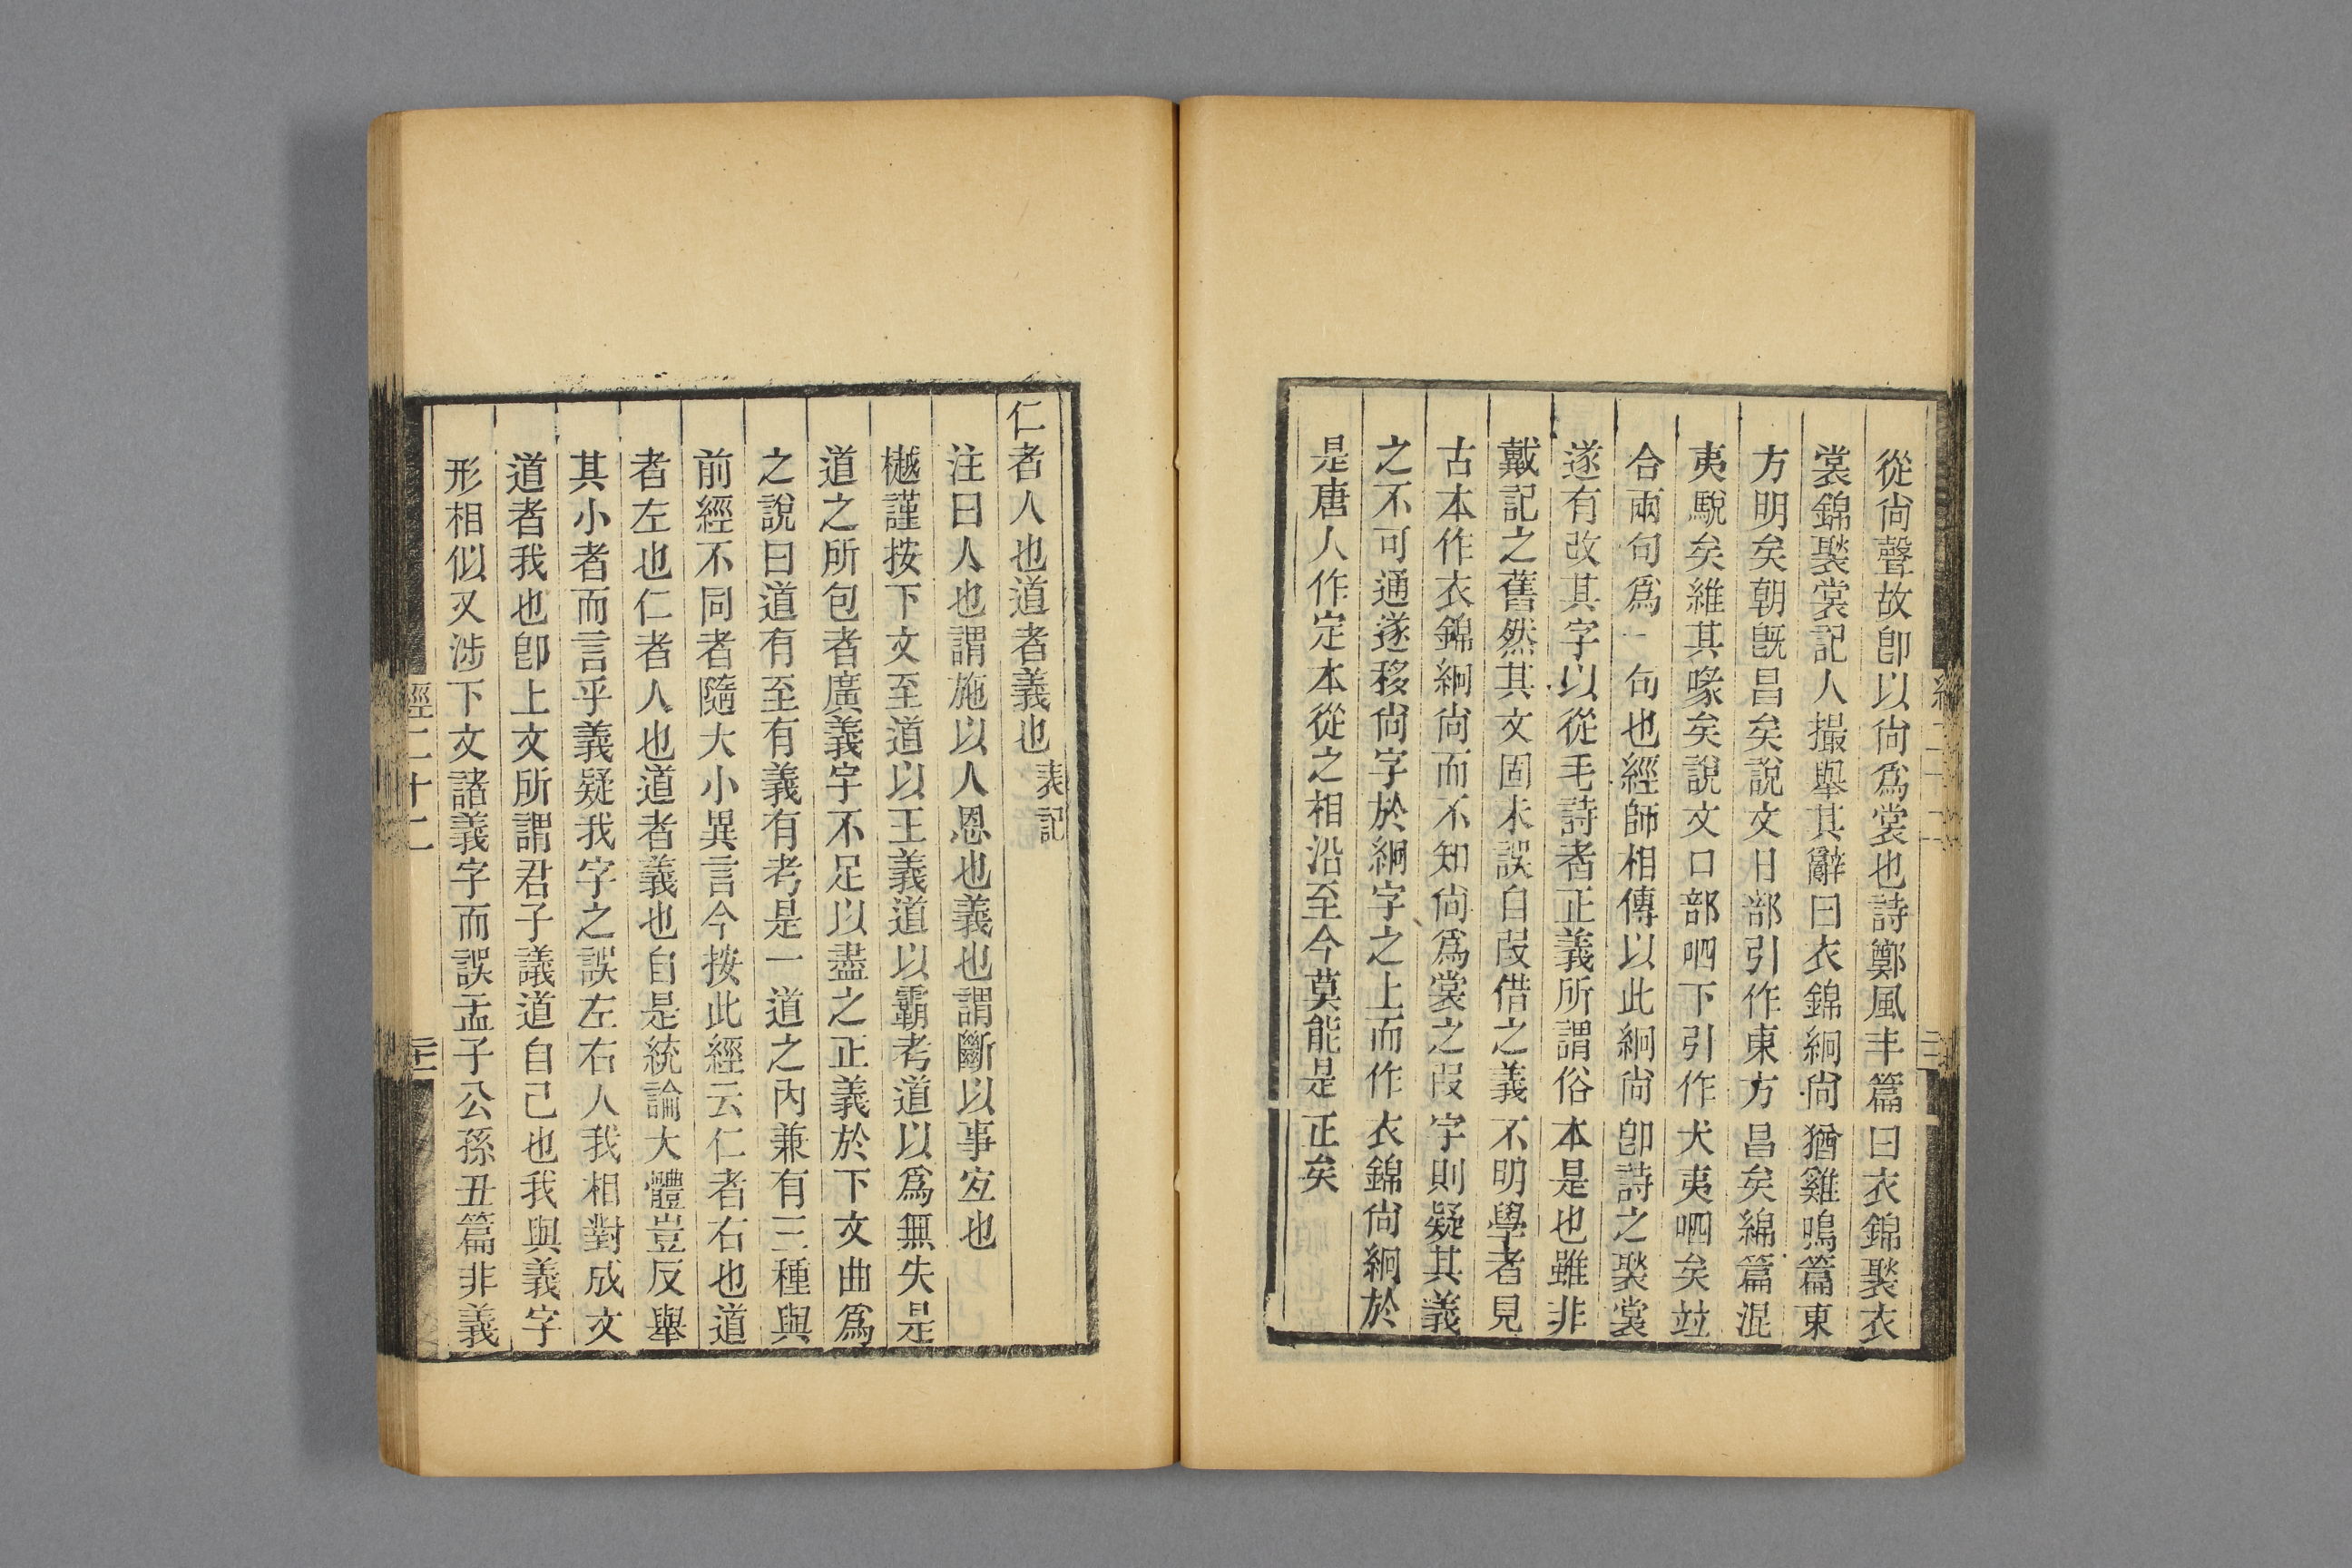 從尙聲故卽以尙爲裳也詩鄭風丰篇曰衣錦褧衣
裳錦褧裳記人撮舉其辭曰衣錦絅尙猶雞鳴篇東
方明矣朝旣昌矣說文日部引作東方昌矣綿篇混
夷駾矣維其喙矣說文口部呬下引作犬夷呬矣竝
合兩句爲一句也經師相傳以此絅尙卽詩之褧裳
遂有改其字以從毛詩者正義所謂俗本是也雖非
戴記之舊然其文固未誤自叚借之義不明學者見
古本作衣錦絅尙而不知尙爲裳之叚字則疑其義
之不可通遂移尙字於絅字之上而作衣錦尙絅於
是唐人作定本從之相沿至今莫能是正矣
仁者人也道者義也表記
注曰人也謂施以人恩也義也謂斷以事宐也
樾謹按下文至道以王義道以霸考道以爲無失是
道之所包者廣義字不足以盡之正義於下文曲爲
之說曰道有至有義有考是一道之內兼有三種與
前經不同者隨大小異言今按此經云仁者右也道
者左也仁者人也道者義也自是統論大體豈反舉
其小者而言乎義疑我字之誤左右人我相對成文
道者我也卽上文所謂君子議道自己也我與義字
形相似又涉下文諸義字而誤孟子公孫丑篇非義
經二十二